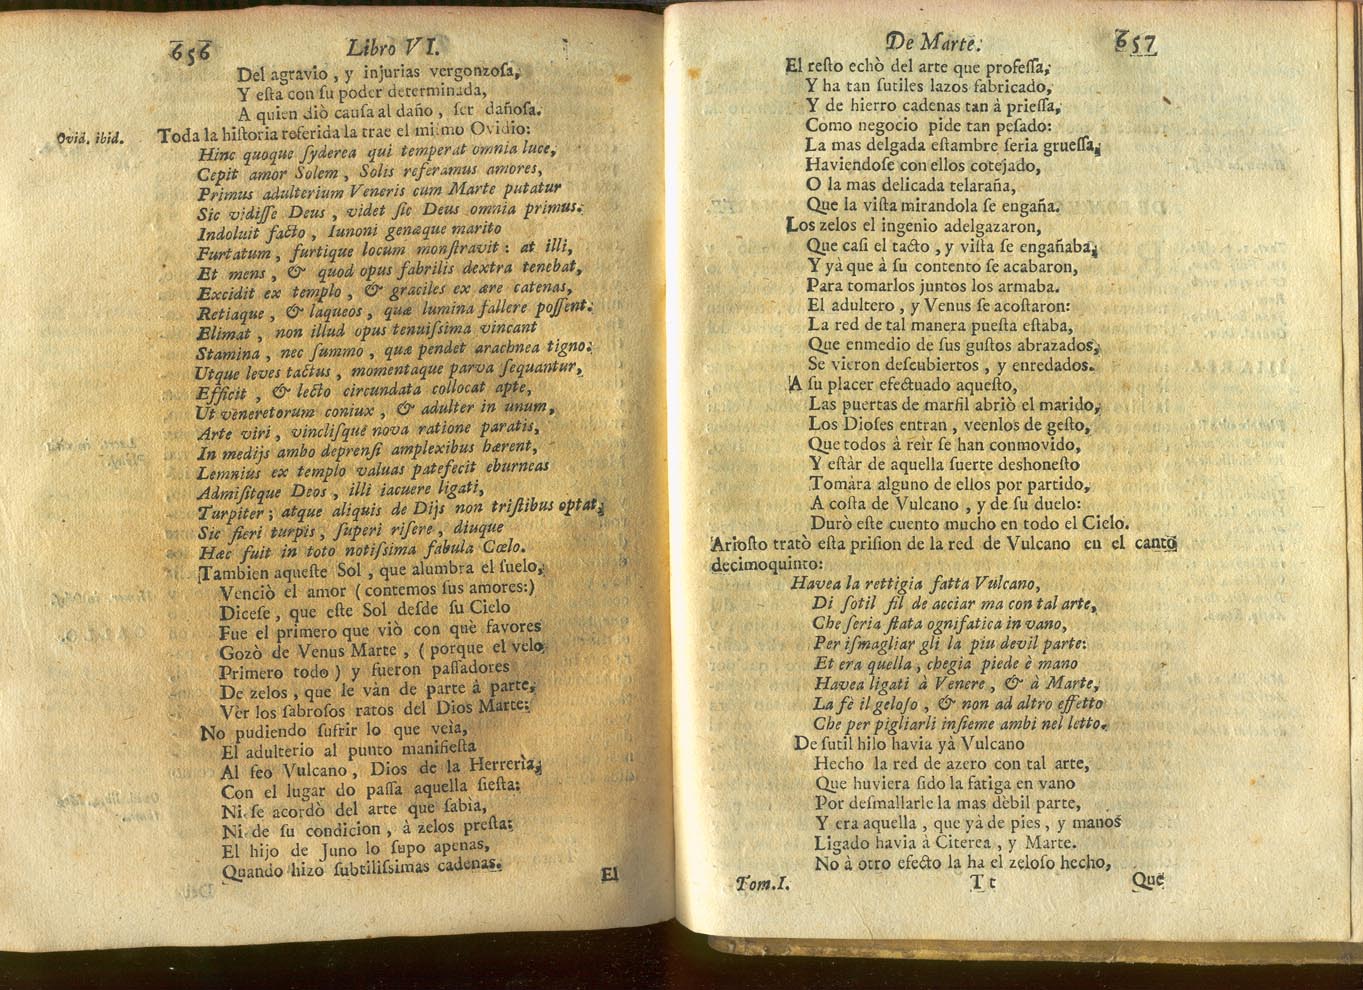 656 Libro VI.
Del agravio, y injurias vergonzoſa,
Y eſta con ſu poder determinada,
A quien diò cauſa al daño, ſer dañoſa.
Ovid. ibid. Toda la hiſtoria referida la trae el miſmo Ovidio:
Hinc quoque ſyderea qui temperat omnia luce,
Cepit amor Solem, Solis referamus amores,
Primus adulterium Veneris cum Marte putatur
Sic vidiſſe Deus, videt ſic Deus omnia primus.
Indoluit facto, Iunoni genæque marito
Furtatum, furtique locum monſtravit: at illi,
Et mens, & quod opus fabrilis dextra tenebat,
Excidit ex templo, & graciles ex ære catenas,
Retiaque, & laqueos, quæ lumina fallere poſſent.
Elimat, non illud opus tenuiſsima vincant
Stamina, nec ſummo, quæ pendet arachnea tigno:
Utque leves tactus, momentaque parva ſequantur,
Efficit, & lecto circundata collocat apte,
Ut veneretorum coniux, & adulter in unum,
Arte viri, vincliſque nova ratione paratis,
In medijs ambo deprenſi amplexibus hærent,
Lemnius ex templo valuas patefecit eburneas
Admiſitque Deos, illi iacuere ligati,
Turpiter; atque aliquis de Dijs non triſtibus optat,
Sic fieri turpis, ſuperi riſere, diuque
Hæc fuit in toto notiſsima fabula Cœlo.
Tambien aqueſte Sol, que alumbra el ſuelo,
Venciò el amor (contemos ſus amores:)
Diceſe, que eſte Sol deſde ſu Cielo
Fue el primero que viò con què favores
Gozò de Venus Marte, (porque el velo
Primero todo) y fueron paſſadores
De zelos, que le vàn de parte à parte,
Vèr los ſabroſos ratos del Dios Marte:
No pudiendo ſufrir lo que veìa,
El adulterio al punto manifieſta
Al feo Vulcano, Dios de la Herrerìa,
Con el lugar do paſſa aquella ſieſta:
Ni ſe acordò del arte que ſabia,
Ni de ſu condicion, à zelos preſta:
El hijo de Juno lo ſupo apenas,
Quando hizo ſubtiliſsimas cadenas.
El
De Marte. 657
El reſto echò del arte que profeſſa,
Y ha tan ſutiles lazos fabricado,
Y de hierro cadenas tan à prieſſa,
Como negocio pide tan peſado:
La mas delgada eſtambre ſeria grueſſa,
Haviendoſe con ellos cotejado,
O la mas delicada telaraña,
Que la viſta mirandola ſe engaña.
Los zelos el ingenio adelgazaron,
Que caſi el tacto, y viſta ſe engañaba,
Y yà que à ſu contento ſe acabaron,
Para tomarlos juntos los armaba.
El adultero, y Venus ſe acoſtaron:
La red de tal manera pueſta eſtaba,
Que enmedio de ſus guſtos abrazados,
Se vieron deſcubiertos, y enredados.
A ſu placer efectuado aqueſto,
Las puertas de marfil abriò el marido,
Los Dioſes entran, veenlos de geſto,
Que todos à reìr ſe han conmovido,
Y eſtàr de aquella ſuerte deshoneſto
Tomàra alguno de ellos por partido,
A coſta de Vulcano, y de ſu duelo:
Durò eſte cuento mucho en todo el Cielo.
Arioſto tratò eſta priſion de la red de Vulcano en el canto
decimoquinto:
Havea la rettigia fatta Vulcano,
Di ſotil fil de acciar ma con tal arte,
Che ſeria ſtata ognifatica in vano,
Per iſmagliar gli la piu devil parte:
Et era quella, chegia piede è mano
Havea ligati à Venere, & à Marte,
La fè il geloſo, & non ad altro effetto
Che per pigliarli inſieme ambi nel letto.
De ſutil hilo havia yà Vulcano
Hecho la red de azero con tal arte,
Que huviera ſido la fatiga en vano
Por deſmallarle la mas dèbil parte,
Y era aquella, que yà de pies, y manos
Ligado havia à Citerea, y Marte.
No à otro efecto la ha el zeloſo hecho,
Tom.I. Tt Que